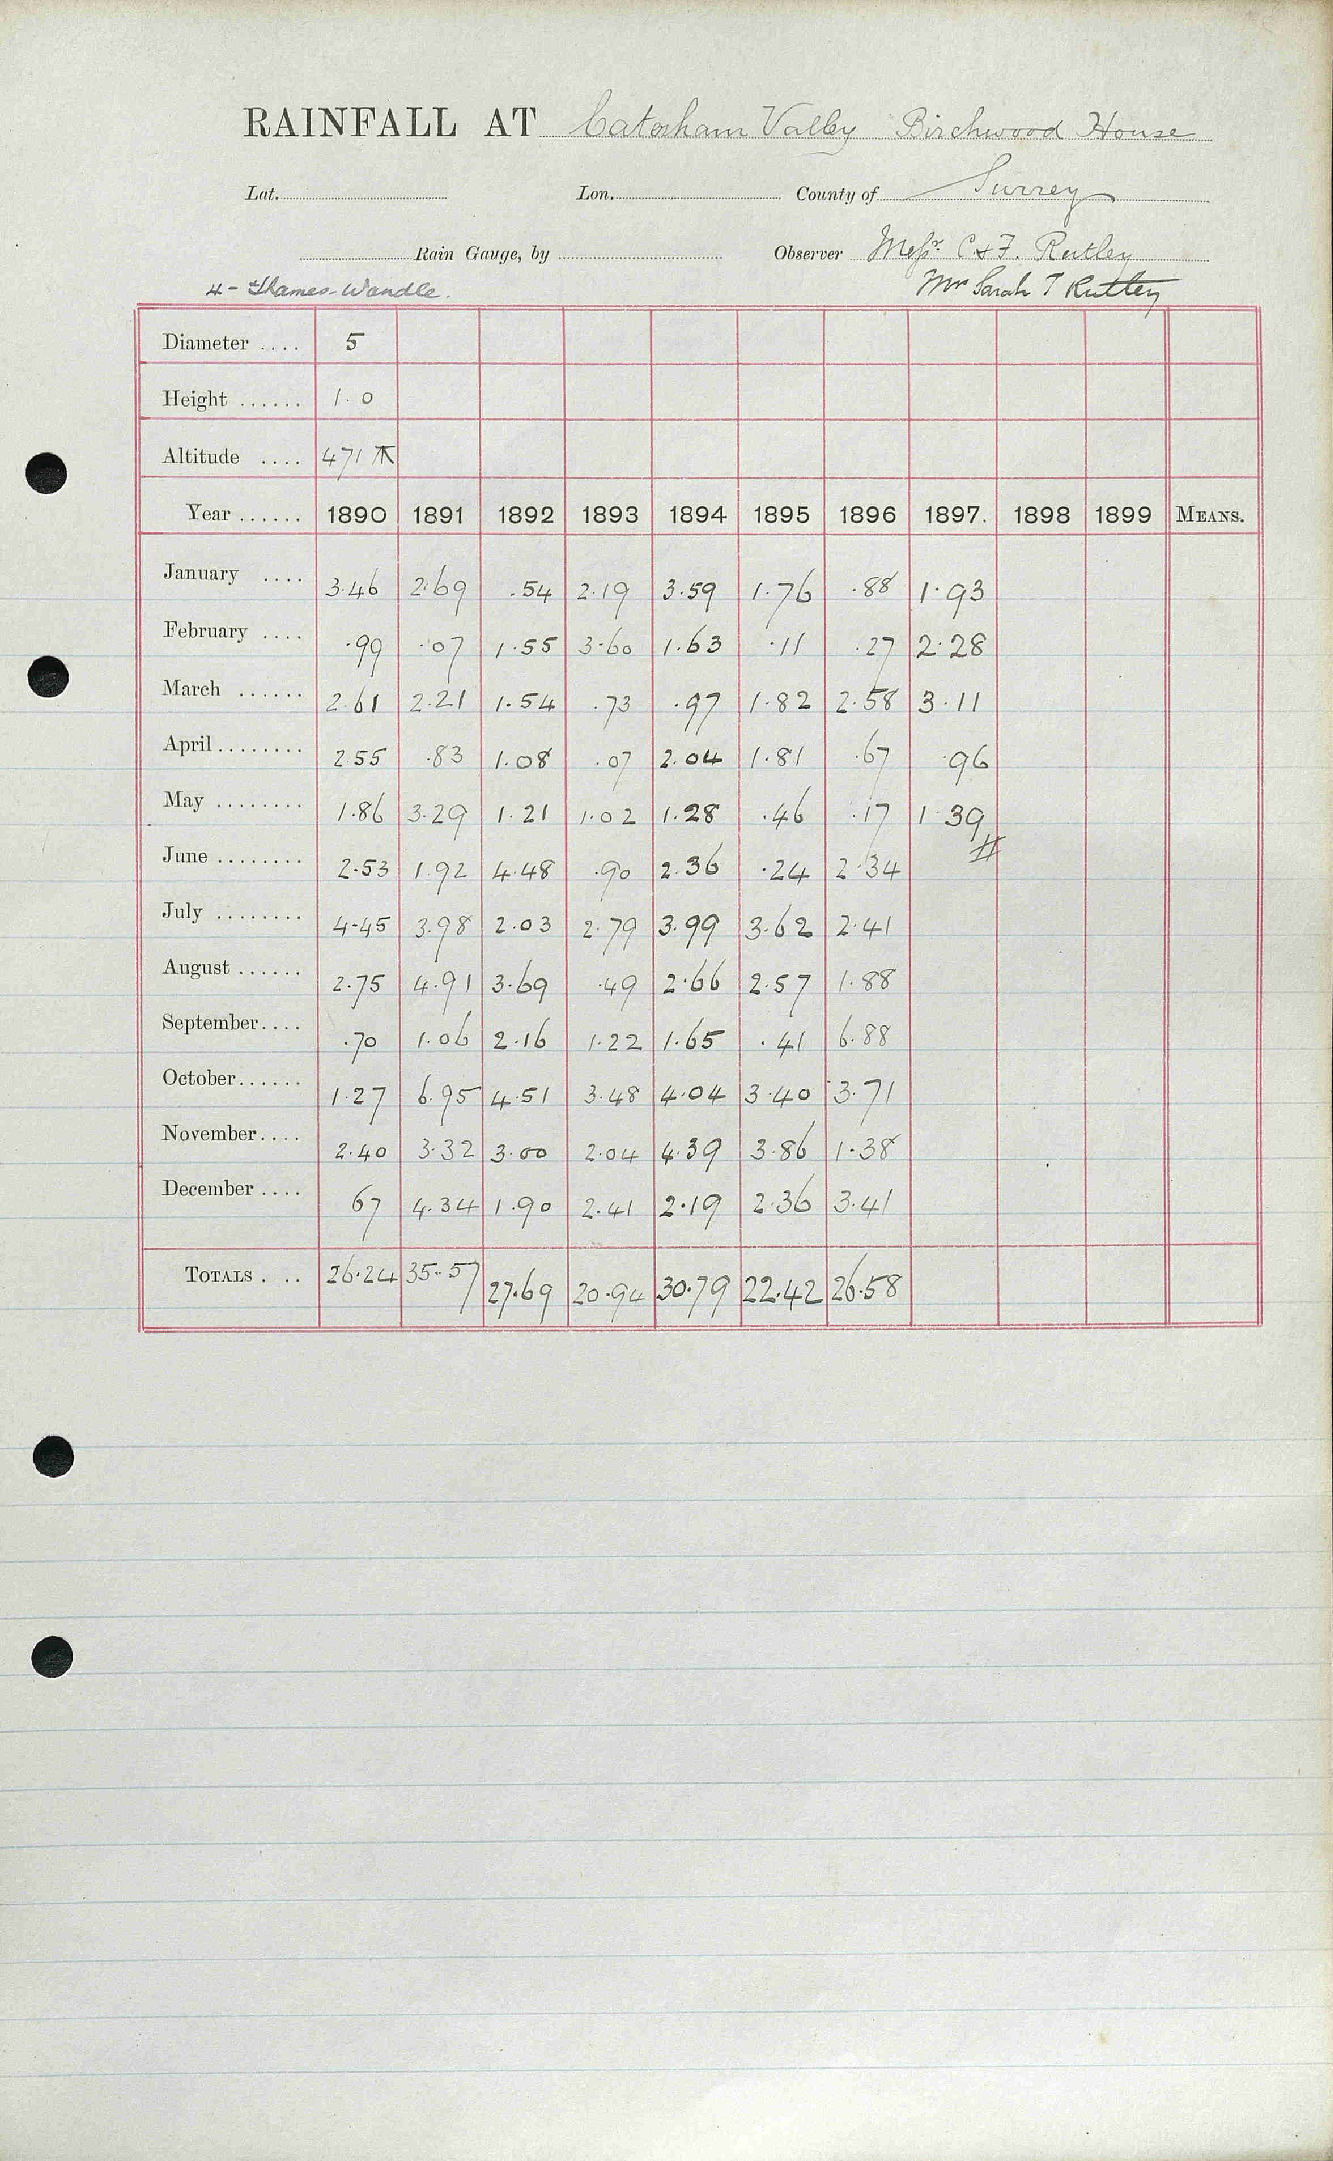 RAINFALL AT Caterham Valley Birchwood House
Lat. Lon. County of Surrey
Rain Gauge, by Observer Messrs. C & F. Rutley
4 - Thames-Wandle. Mrs Sarah T Rutley
Diameter .... 5
Height ...... 1.0
Altitude .... 471
Year ...... 1890 1891 1892 1893 1894 1895 1896 1897. 1898 1899 MEANS.
January .... 3.46 2.69 .54 2.19 3.59 1.76 .88 1.93
February .... .99 .07 1.55 3.60 1.63 .11 .27 2.28
March ...... 2.61 2.21 1.54 .73 .97 1.82 2.58 3.11
April ........ 2.55 .83 1.08 .07 2.04 1.81 .67 .96
May ........ 1.86 3.29 1.21 1.02 1.28 .46 .17 1.39
June ........ 2.53 1.92 4.48 .90 2.36 .24 2.34
July ........ 4.45 3.98 2.03 2.79 3.99 3.62 2.41
August ...... 2.75 4.91 3.69 .49 2.66 2.57 1.88
September.... .70 1.06 2.16 1.22 1.65 .41 6.88
October...... 1.27 6.95 4.51 3.48 4.04 3.40 3.71
November.... 2.40 3.32 3.00 2.04 4.39 3.86 1.38
December .... 67 4.34 1.90 2.41 2.19 2.36 3.41
TOTALS . .. 26.24 35.57 27.69 20.94 30.79 22.42 26.58